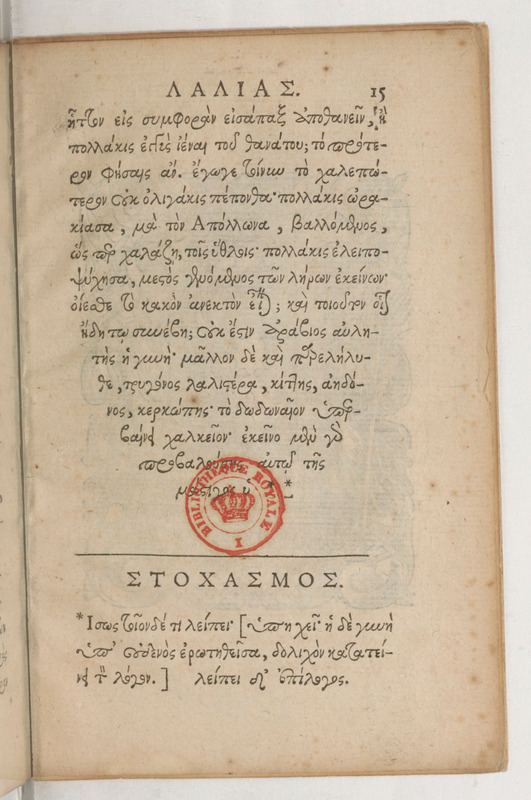 ΛΑΛΙΑΣ. 15
ἧττον εἰς συμφορὰν εἰσάπαξ ἀποθανεῖν, ἢ
πολλάκις ἐγγὺς ἰέναι τοῦ θανάτου; τὸ πρότε-
ρον φήσαις ἄν. ἔγωγε τίνυν τὸ χαλεπώ-
τερον οὐκ ὀλιγάκις πέπονθα· πολλάκις ὠρα-
κίασα, μὰ τὸν Απόλλωνα, βαλλόμενος,
ὥσπερ χαλάζῃ, τοῖς ὕθλοις· πολλάκις ἐλειπο-
ψύχησα, μεστὸς γενόμενος τῶν λήρων ἐκείνων·
οἴεσθε τὸ κακὸν ἀνεκτὸν εἶναι; καὶ τοιοῦτον οἷον
ἤδη τῳ συνέβη; οὐκ ἔστιν Ἀράβιος αὐλη-
τὴς ἡ γυνή· μᾶλλον δὲ καὶ παρελήλυ-
θε, τρυγόνος λαλιστέρα, κίττης, ἀηδό-
νος, κερκώπης· τὸ δωδωναῖον ὑπερ-
βαίνει χαλκεῖον· ἐκεῖνο μὲν γὸ
προβαλούσης αὐτῷ τῆς
μάστιγος
BIBLIOTHEQUE ROYALE
I
ΣΤΟΧΑΣΜΟΣ.
*Ισως τοιονδέ τι λείπει· [ὑπηχεῖ· ἡ δὲ γυνὴ
ὑπ' οὐδενὸς ἐρωτηθεῖσα, δολιχὸν κατατεί-
νει τὸν λόγον.] λείπει δὲ ἐπίλογος.